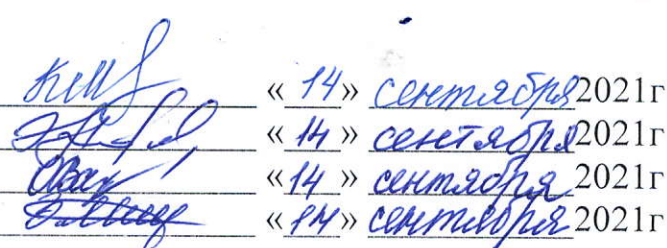 « 14 » сентября 2021г
« 14 » сентября 2021г
« 14 » сентября 2021г
« 14 » сентября 2021г